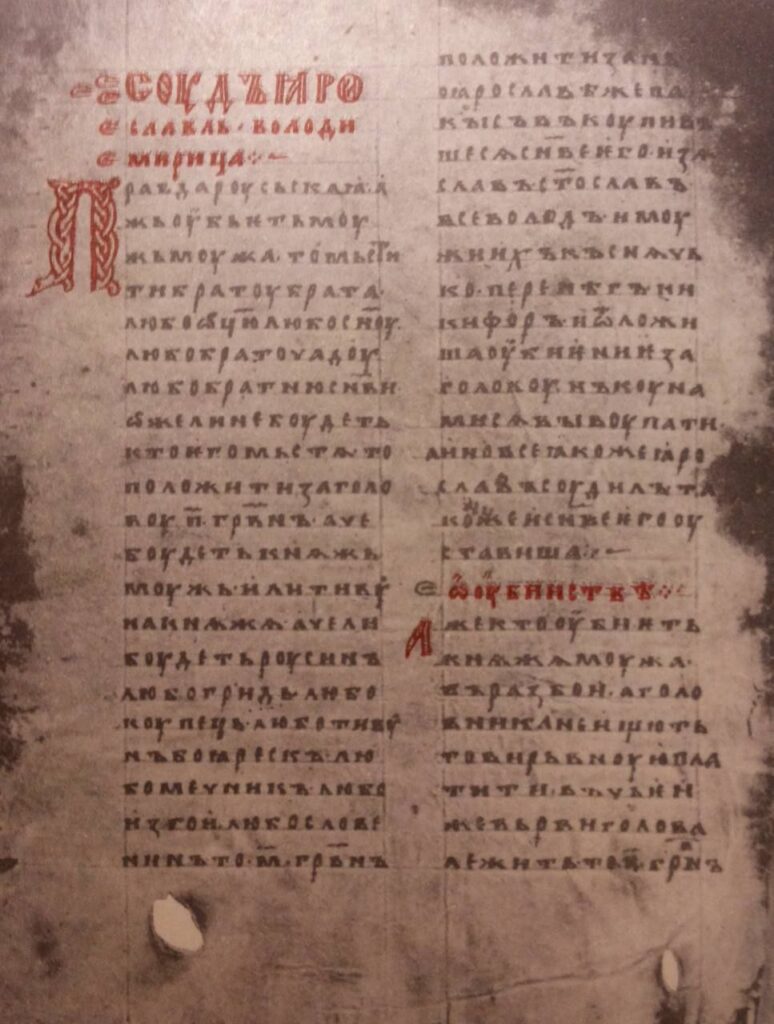 СОУДЪ ꙖРО
СЛАВЛЬ · ВОЛОДИ
МИРИЦА⁘~
Правда роусьскаꙗ · а
жь оубьѥть моу
жь моужа · то мьсти
ти братоу брата ·
любо ѿцю любо сн҃оу ·
любо братоучадоу ·
любо братню сн҃ви
ѡже ли не боудеть
кто ѥго мьстѧ · то
положити за голо
воу · п҃ · грв҃нъ · аче
боудеть кнѧжь
моужь · или тивоу
на кнѧжѧ · аче ли
боудеть роусинъ
любо гридь · любо
коупець · любо тивоу
нъ боꙗрескъ · лю
бо мечникъ · любо
изгои · любо слове
нинъ · то · м҃ · грв҃нъ
положити за нь
по ꙗрославѣ же па
кы съвъкоупивъ
шесѧ сн҃ве ѥго · изѧ
славъ · ст҃ославъ
всеволодъ · и моу
жи ихъ · къснѧчь
ко · перенѣгъ · ни
кифоръ · и ѿложи
ша оубиѥниѥ за
головоу · нъ коуна
ми сѧ выкоупати ·
а ино все ꙗкоже ꙗро
славъ соудилъ · та
коже и сн҃ве ѥго оу
ставиша⁘~
Ѡ оубииствѣ⁘
Аже кто оубиѥть
кнѧжѧ моужа ·
въ разбои · а голо
вника не ищють
то вирьвноую пла
тити · въ чьѥи
же вьрви голова
лежить · то · п҃ · грв҃нъ